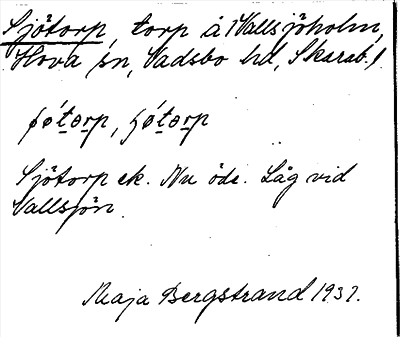 Sjötorp, torp å Vallsjöholm,
Hova sn, Vadsbo hd, Skarab. l
Sjötorp ek. Nu öde. Låg vid
Vallsjön.
Maja Bergstrand 1937.